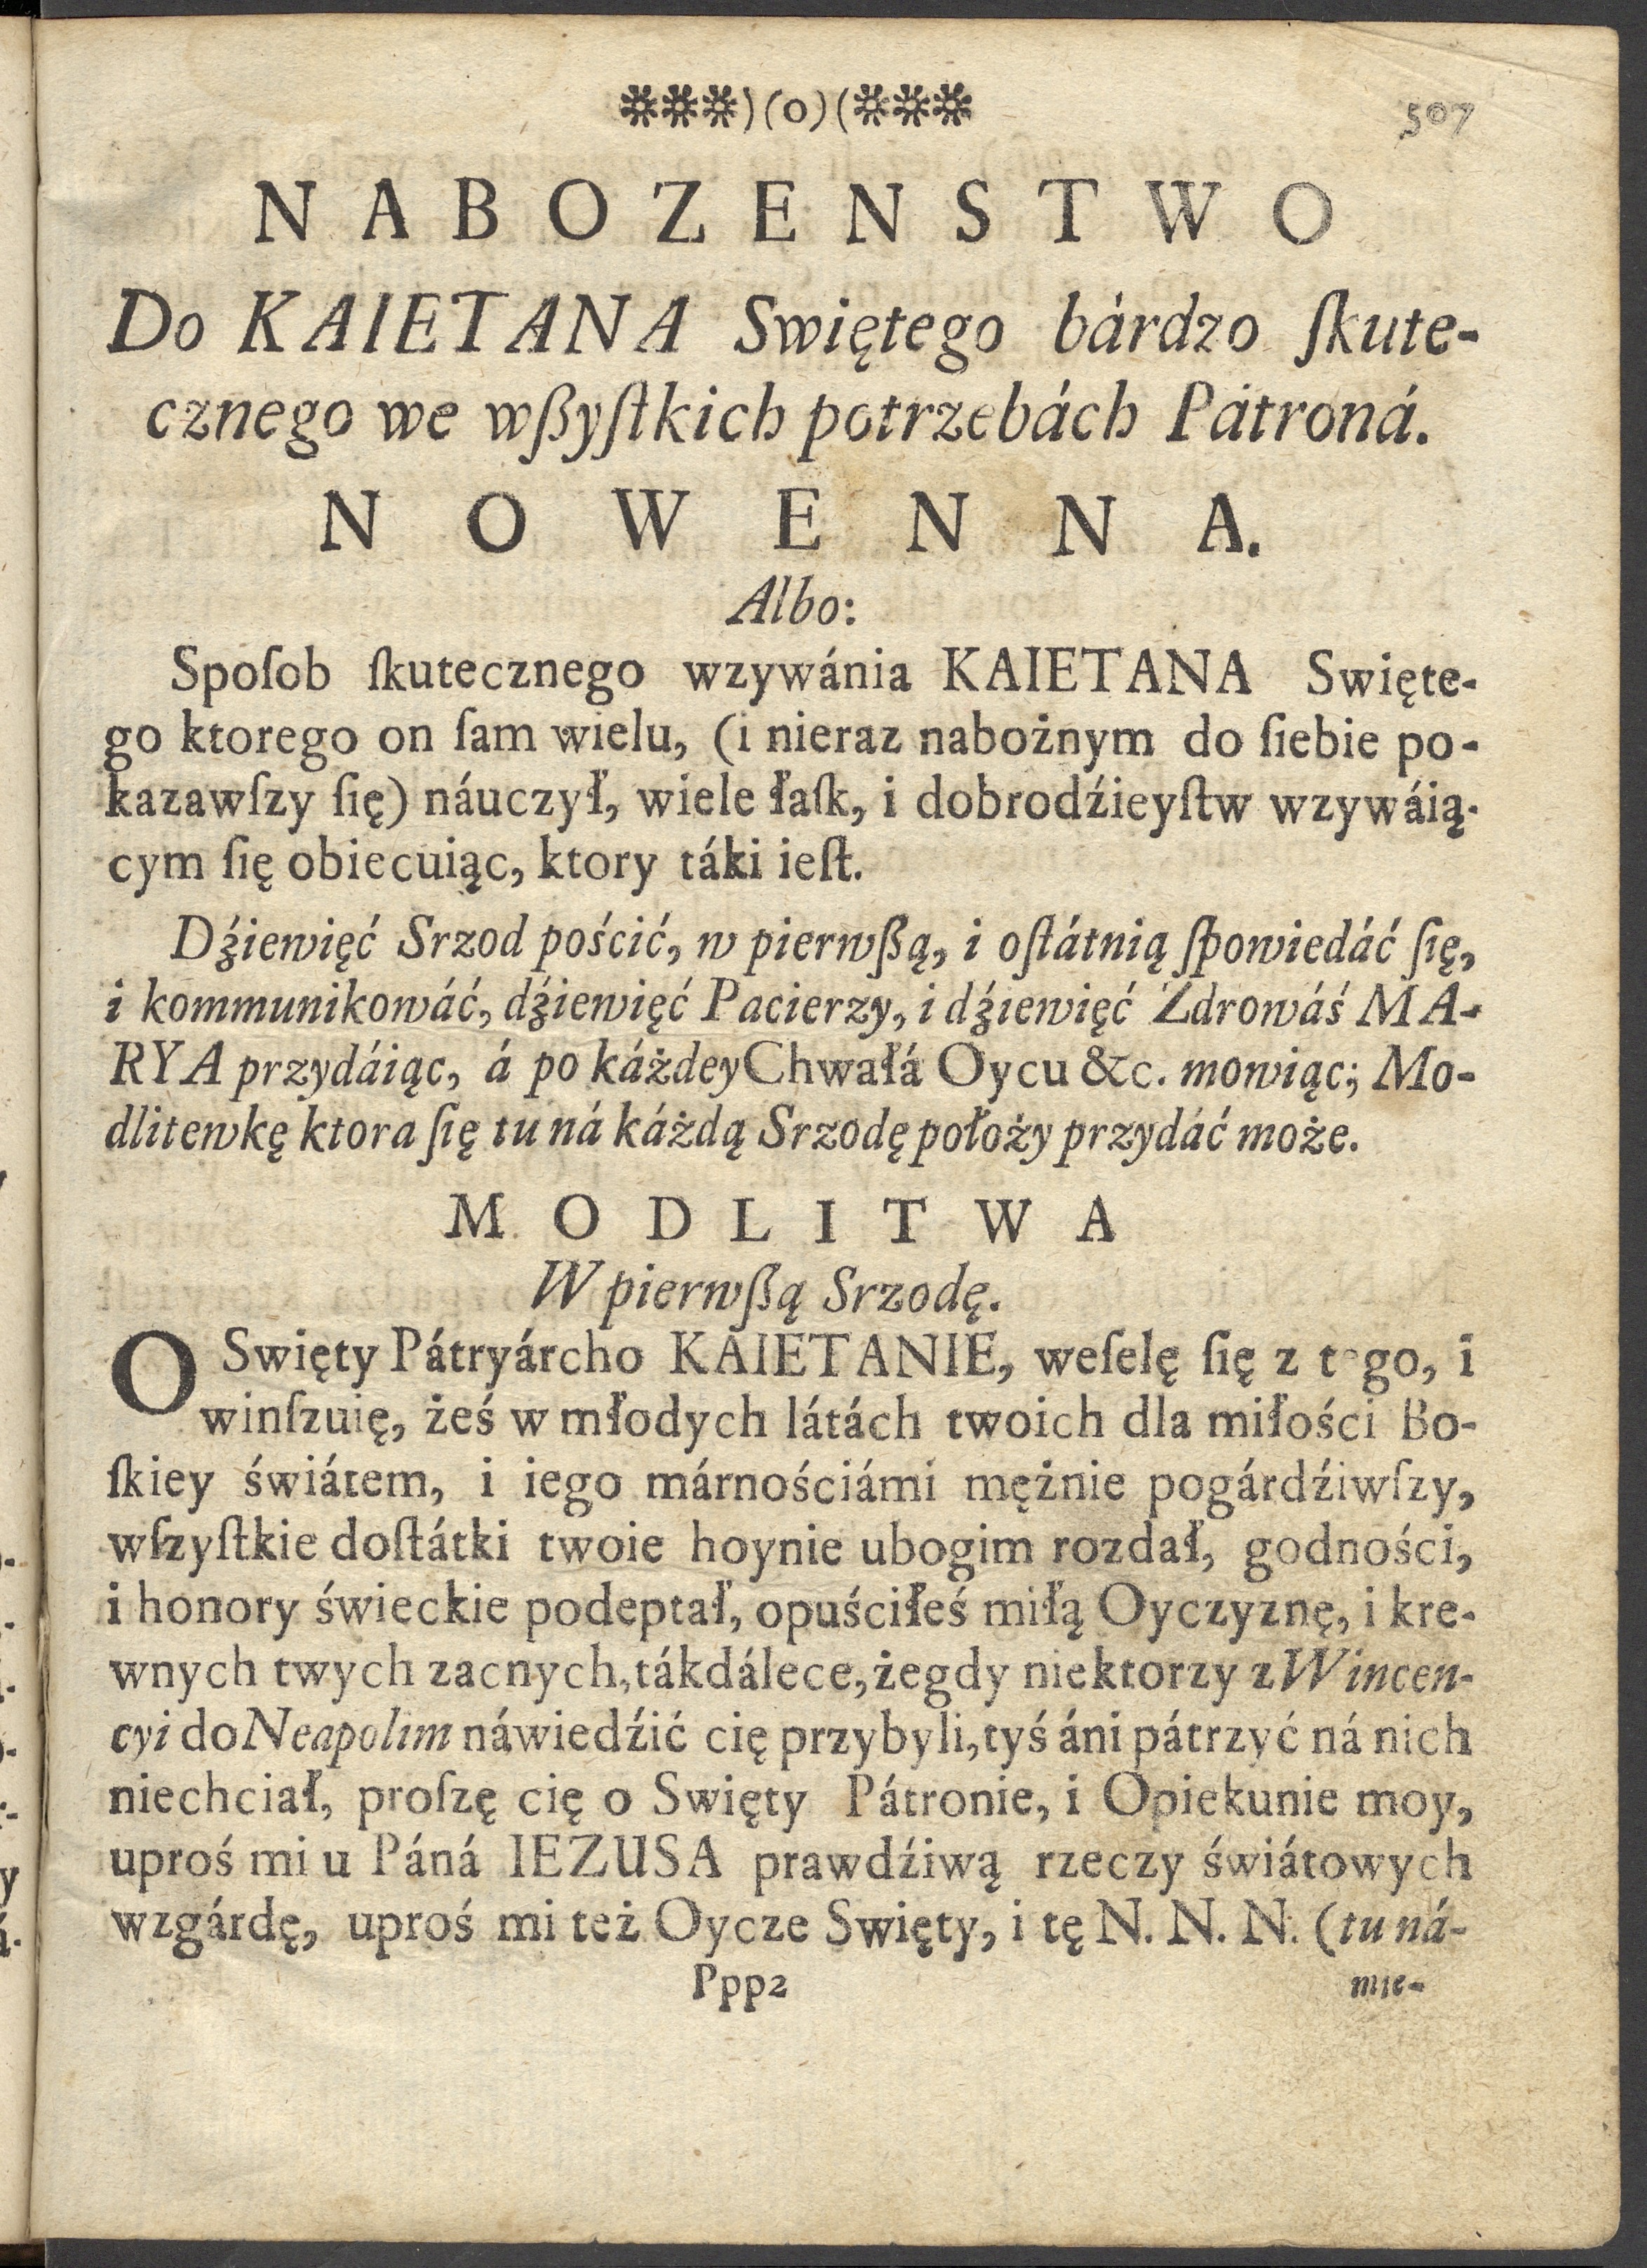 ***)(o)(***
507
NABOZENSTWO
Do KAIETANA Swiętego bárdzo ſkute-
cznego we wßyſtkich potrzebách Pátroná.
NOWENNA.
Albo:
Spoſob ſkutecznego wzywánia KAIETANA Swięte-
go ktorego on ſam wielu, (i nieraz nabożnym do ſiebie po-
kazawſzy ſię) náuczył, wiele łaſk, i dobrodźieyſtw wzywáią-
cym ſię obiecuiąc, ktory táki ieſt.
Dźiewięć Srzod pościć, w pierwßą, i oſtátnią ſpowiedáć ſię,
i kommunikowáć, dźiewięć Pacierzy, i dźiewięć Zdrowáś MA-
RYA przydáiąc, á po káżdey Chwałá Oycu &c. mowiąc; Mo-
dlitewkę ktora ſię tu ná káżdą Srzodę położy przydáć może.
MODLITWA
W pierwßą Srzodę.
O Swięty Pátryárcho KAIETANIE, weſelę ſię z tego, i
winſzuię, żeś w młodych látách twoich dla miłości Bo-
ſkiey świátem, i iego márnościámi mężnie pogárdźiwſzy,
wſzyſtkie doſtátki twoie hoynie ubogim rozdał, godności,
i honory świeckie podeptał, opuściłeś miłą Oyczyznę, i kre-
wnych twych zacnych, tákdálece, żegdy niektorzy z Wincen-
cyi do Neapolim náwiedźić cię przybyli, tyś áni pátrzyć ná nich
niechciał, proſzę cię o Swięty Pátronie, i Opiekunie moy,
uproś mi u Páná IEZUSA prawdźiwą rzeczy świátowych
wzgárdę, uproś mi też Oycze Swięty, i tę N. N. N. (tu ná-
Ppp2
mie-